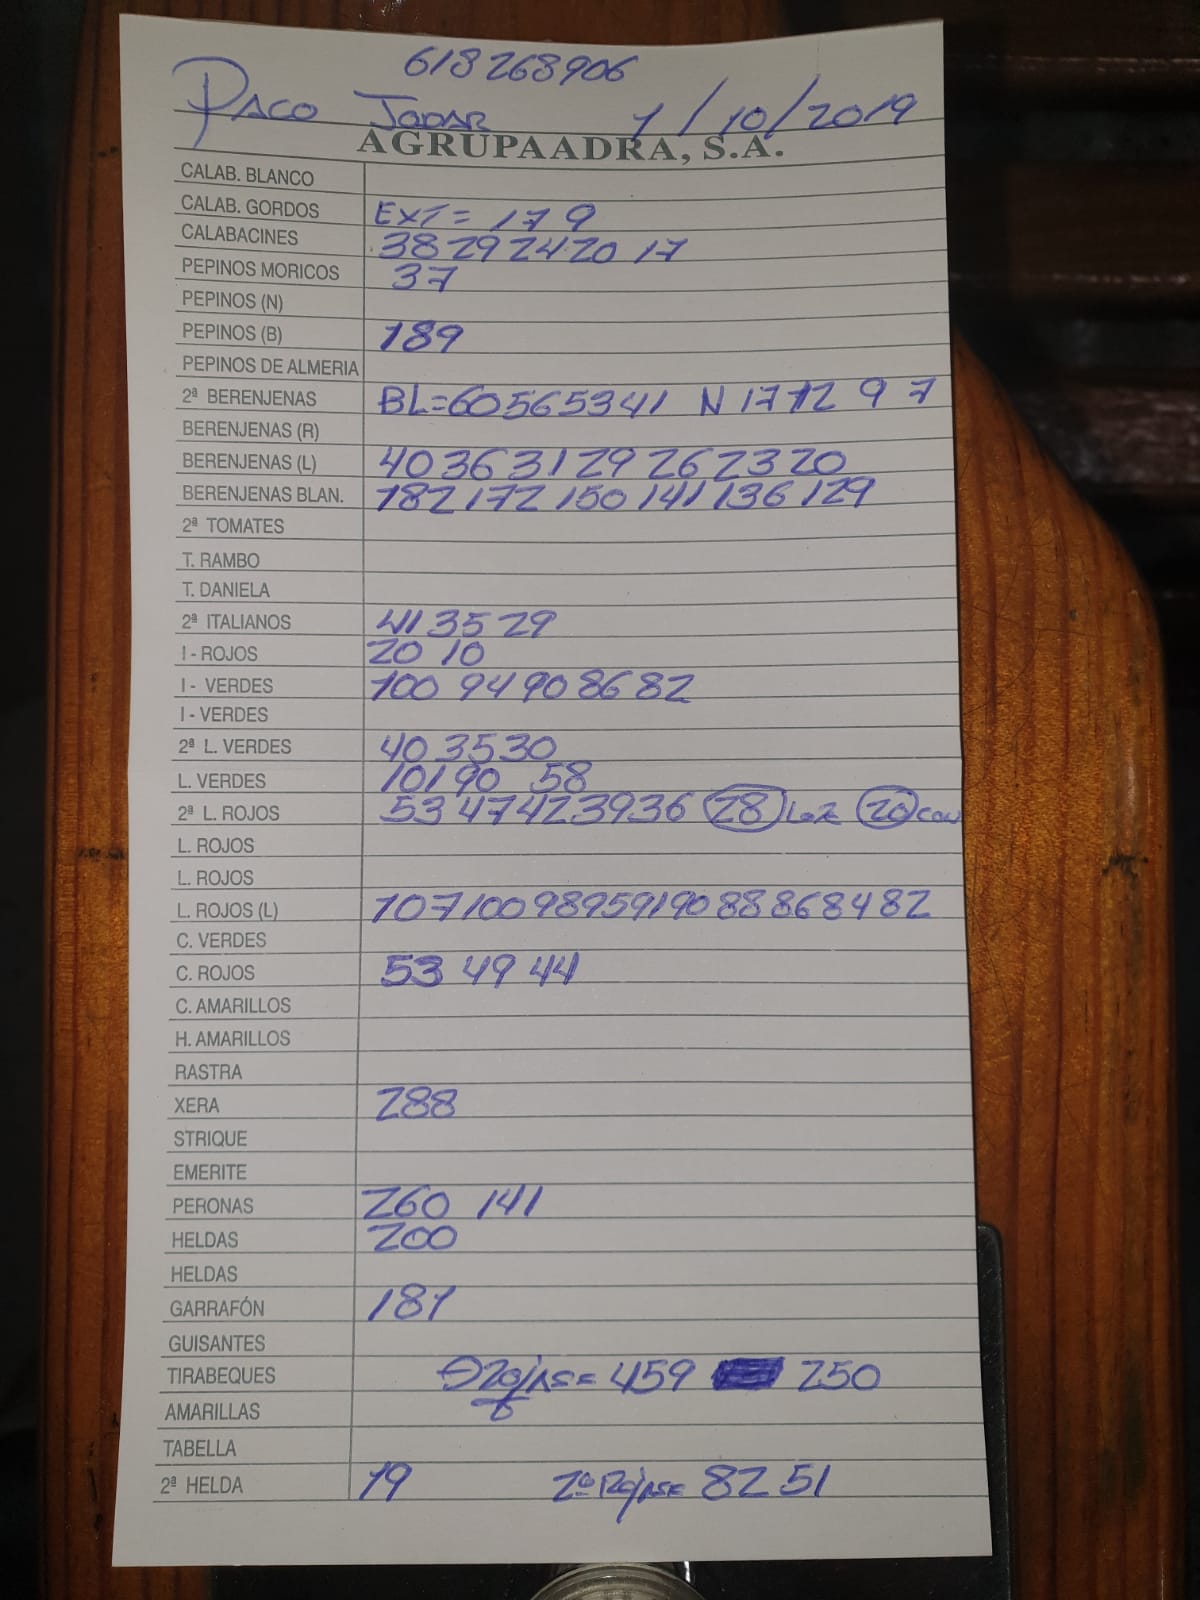 618268906
PACO JODAR 1/10/2019
AGRUPAADRA, S.A.
CALAB. BLANCO
CALAB. GORDOS EXT= 17 9
CALABACINES 38 29 24 20 17
PEPINOS MORICOS 37
PEPINOS (N)
PEPINOS (B) 189
PEPINOS DE ALMERIA
2ª BERENJENAS BL=60 56 53 41 N 17 12 9 7
BERENJENAS (R)
BERENJENAS (L) 40 36 31 29 26 23 20
BERENJENAS BLAN. 182 172 150 141 136 129
2ª TOMATES
T. RAMBO
T. DANIELA
2ª ITALIANOS 41 35 29
I - ROJOS 20 10
I - VERDES 100 94 90 86 82
I - VERDES
2ª L. VERDES 40 35 30
L. VERDES 101 90 58
2ª L. ROJOS 53 47 42 39 36 28 20
L. ROJOS
L. ROJOS
L. ROJOS (L) 107 100 98 95 91 90 88 86 84 82
C. VERDES
C. ROJOS 53 49 44
C. AMARILLOS
H. AMARILLOS
RASTRA
XERA 288
STRIQUE
EMERITE
PERONAS 260 141
HELDAS 200
HELDAS
GARRAFÓN 187
GUISANTES
TIRABEQUES 459 250
AMARILLAS
TABELLA
2ª HELDA 19 82 51